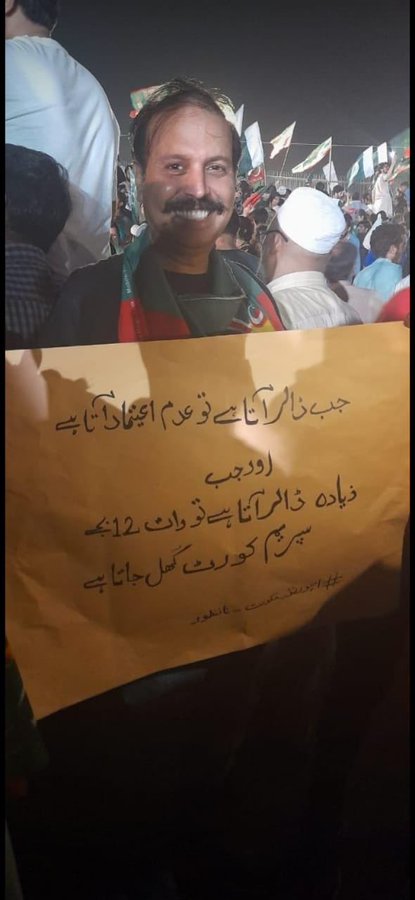 جب ڈالر آتا ہے تو عدم اعتماد آتا ہے
اور جب
زیادہ ڈالر آتا ہے تو رات 12 بجے
سپریم کورٹ کھل جاتا ہے
##امپورٹڈ حکومت _ نامنظور